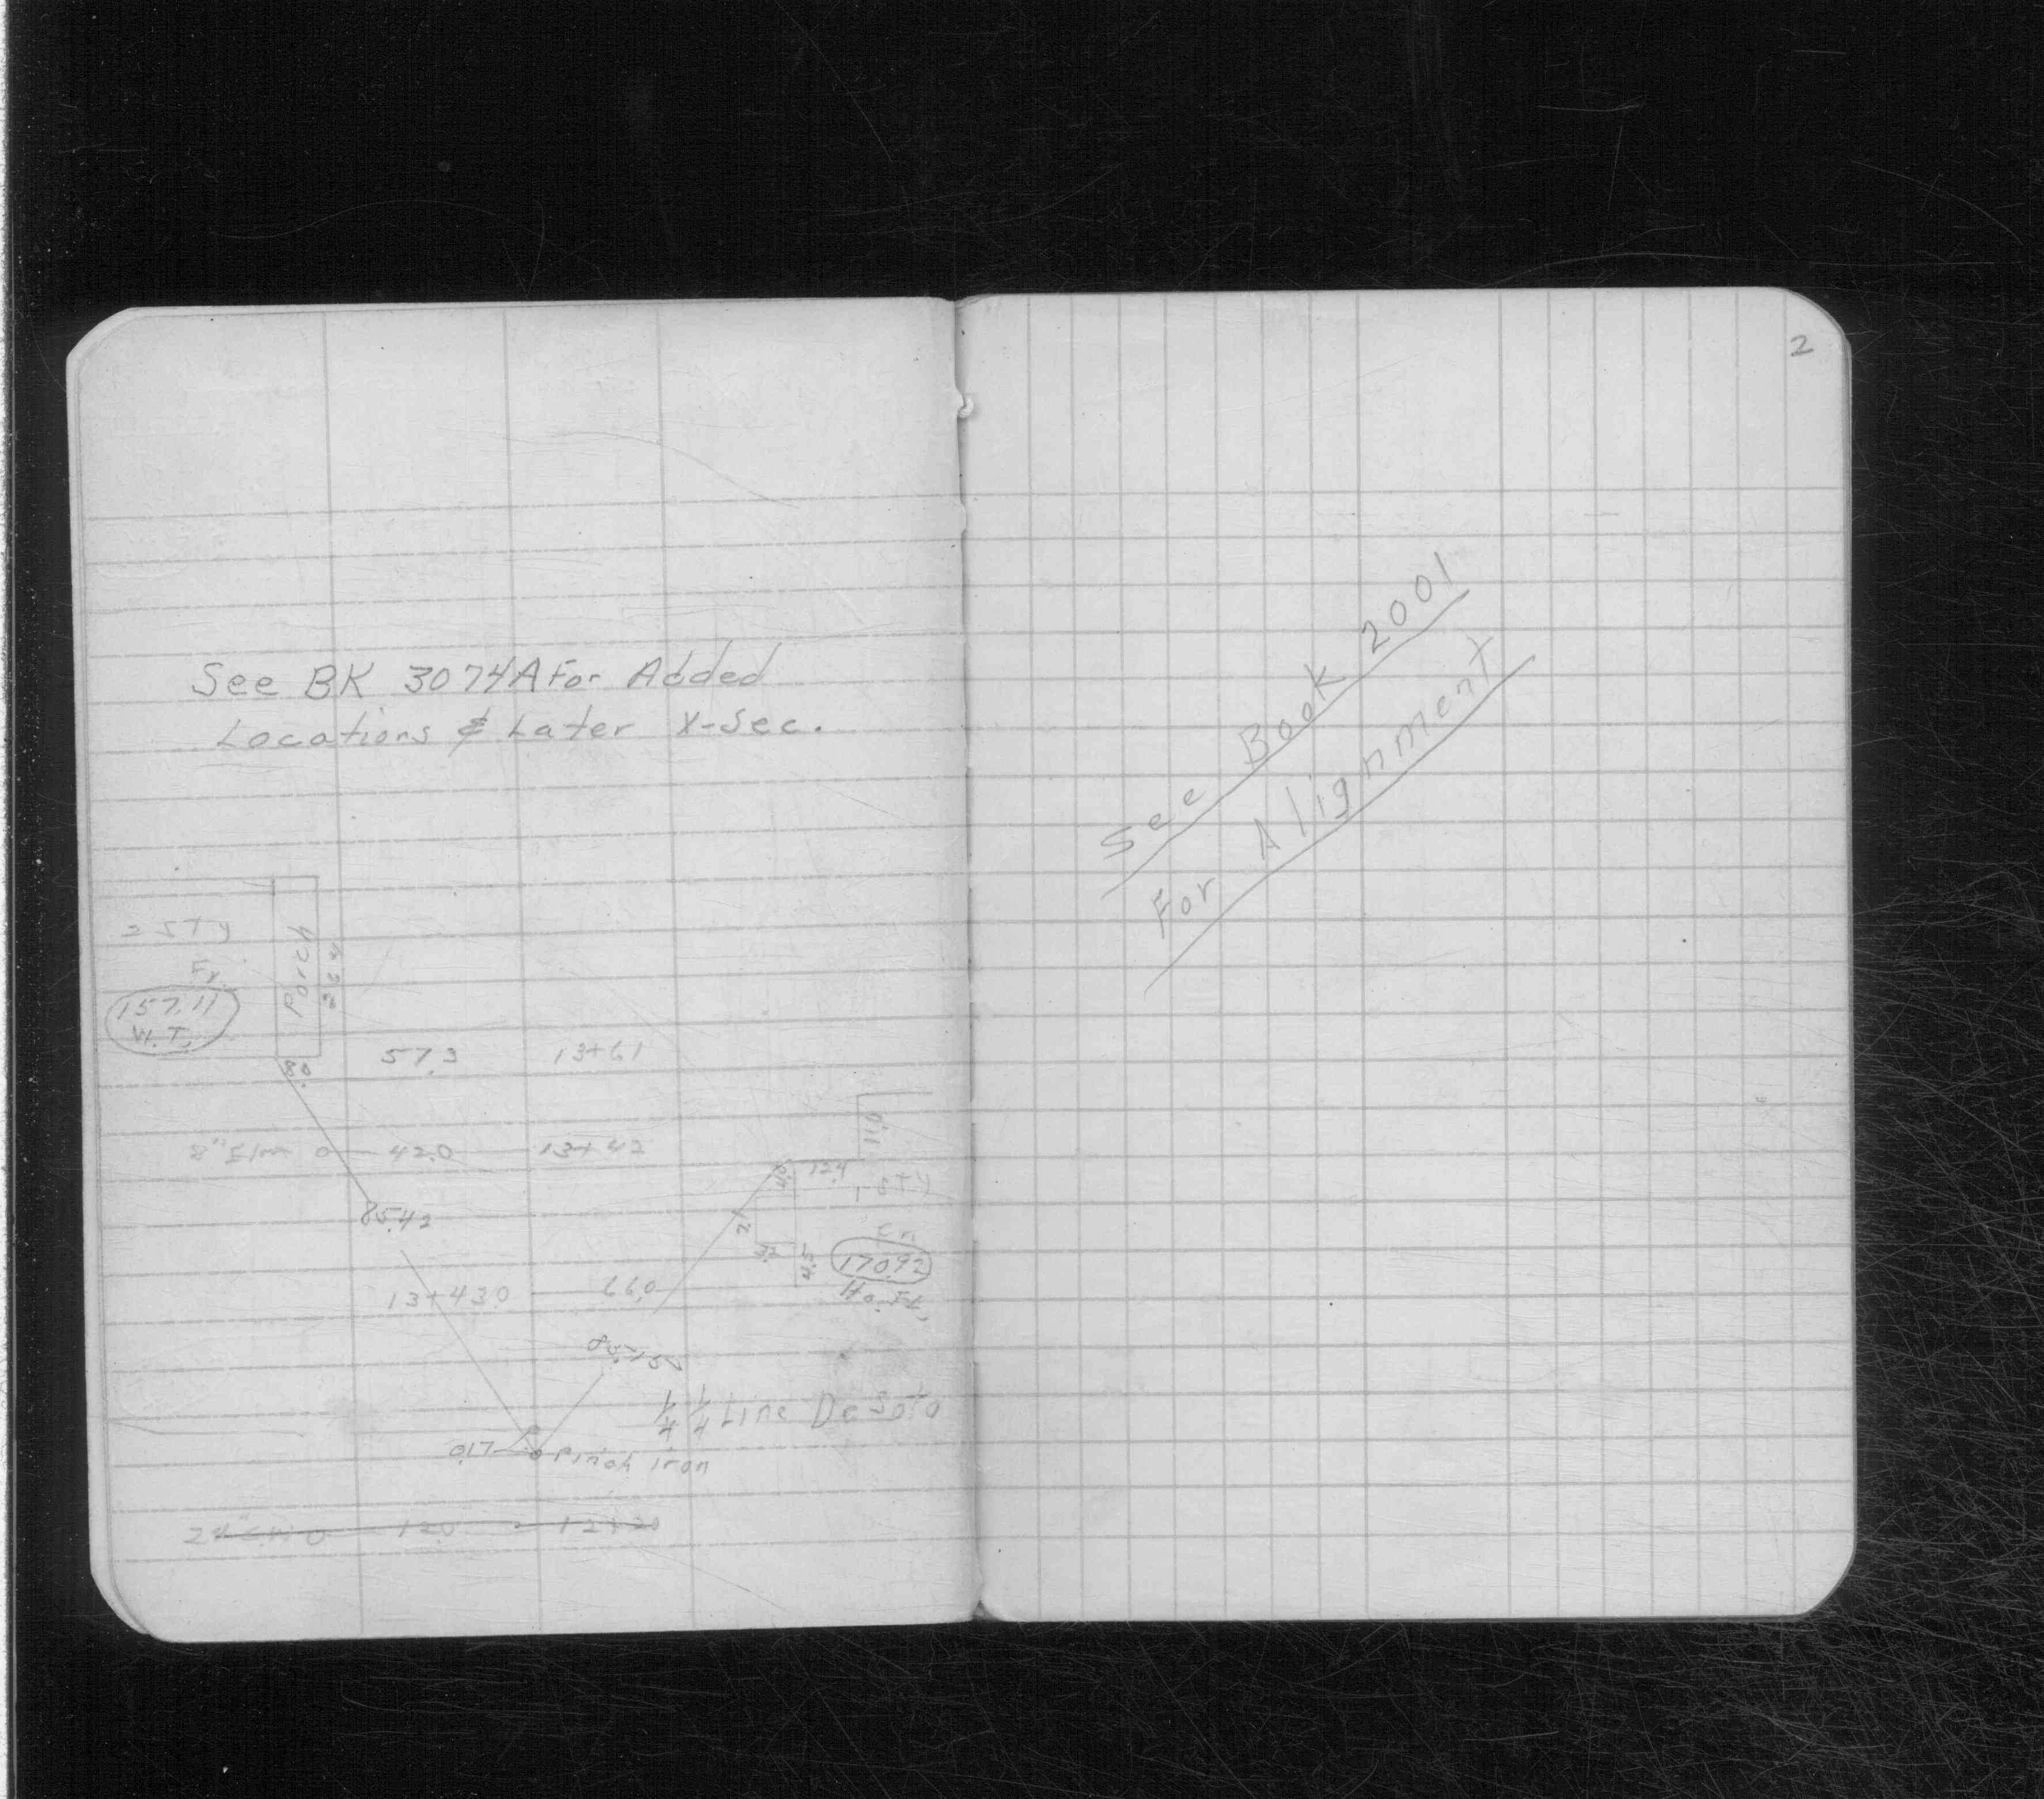 See BK 3074A For Added
Locations & Later X-Sec.
2 STY
Fr.
157.11
W.T.
Porch
8.0
57.3 13+61
8" Elm 42.0 13+42
85.42
11.0
4.0 12.4
1-STY
7.1
4.5
170.92
13+43.0 66.0
1/4 1/4 Line DeSoto
0.17 Pinch Iron
12.0 12+20
2
See Book 2001
For Alignment